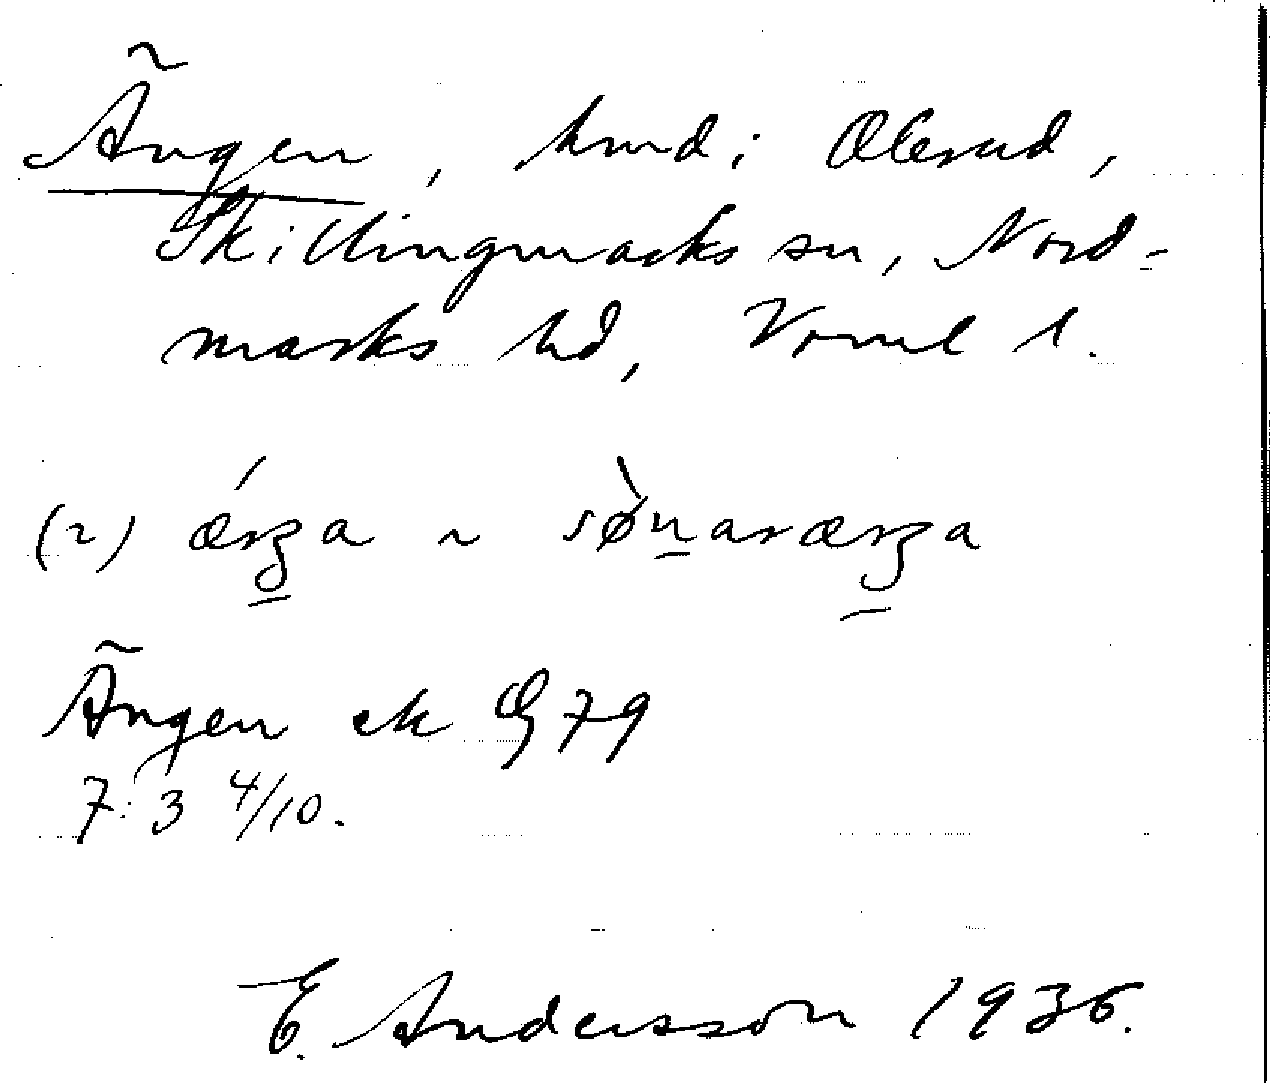 Ängen, hmd i Olerud,
Skillingmarks sn, Nord-
marks hd, Vrml l.
(2) ǽrʒa ~ sø̀narærʒa
Ängen ek G 79
7:3 4/10.
E. Andersson 1936.